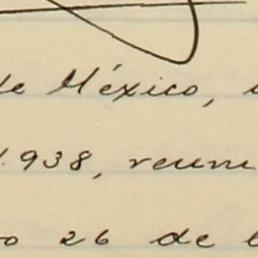 de México,
1.938, reuni
26 de